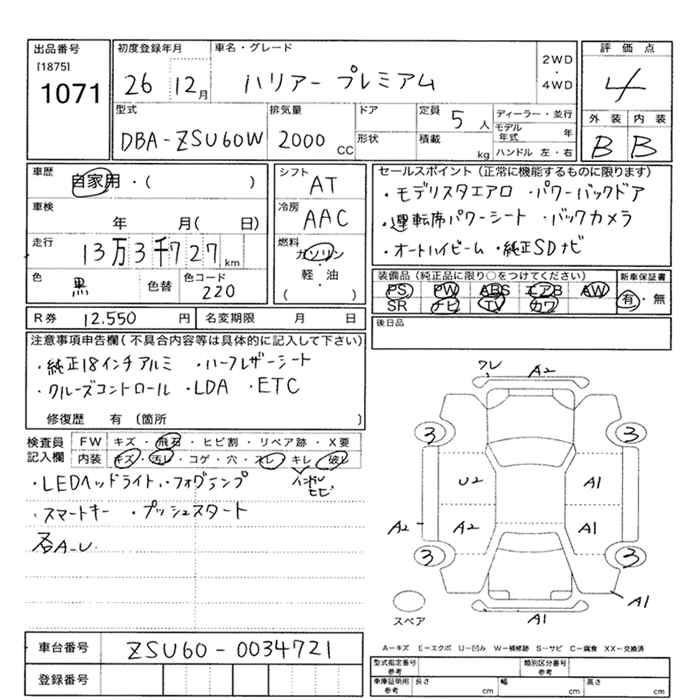 出品番号
[1875]
1071
初度登録年月
26 12月
車名・グレード
ハリアー プレミアム
2WD
・
4WD
評価点
4
外装 内装
B B
型式
DBA-ZSU60W
排気量
2000 CC
ドア
形状
定員 5 人
積載 kg
ディーラー・並行
モデル年式 年
ハンドル 左・右
車歴
自家用・( )
車検
年 月( 日)
走行
13万3千727km
色
黒
色替
色コード
220
シフト
AT
冷房
AAC
燃料
ガソリン
・
軽・油
( )
セールスポイント(正常に機能するものに限ります)
・モデリスタエアロ ・パワーバックドア
・運転席パワーシート ・バックカメラ
・オートハイビーム ・純正SDナビ
装備品(純正品に限り○をつけてください)
PS PW ABS エアB AW
SR ナビ TV カワ
新車保証書
有・無
後日品
R券 12,550 円 名変期限 月 日
注意事項申告欄(不具合内容等は具体的に記入して下さい)
・純正18インチアルミ ・ハーフレザーシート
・クルーズコントロール ・LDA ・ETC
修復歴 有 (箇所 )
検査員記入欄
FW キズ・飛石・ヒビ割・リペア跡・X要
内装 キズ・汚レ・コゲ・穴・スレ・キレ・破レ
ハンドル
ヒビ
・LEDヘッドライト・フォグランプ
・スマートキー ・プッシュスタート
各A-U
ワレ
A2
3 3
U2 A1
A2 A2 A1
3 3
A1
A1
スペア
A-キズ E-エクボ U-凹み W-補修跡 S-サビ C-腐食 XX-交換済
車台番号 ZSU60-0034721
登録番号
型式指定番号
参考
類別区分番号
参考
車庫証明用
参考
長さ cm 幅 cm 高さ cm